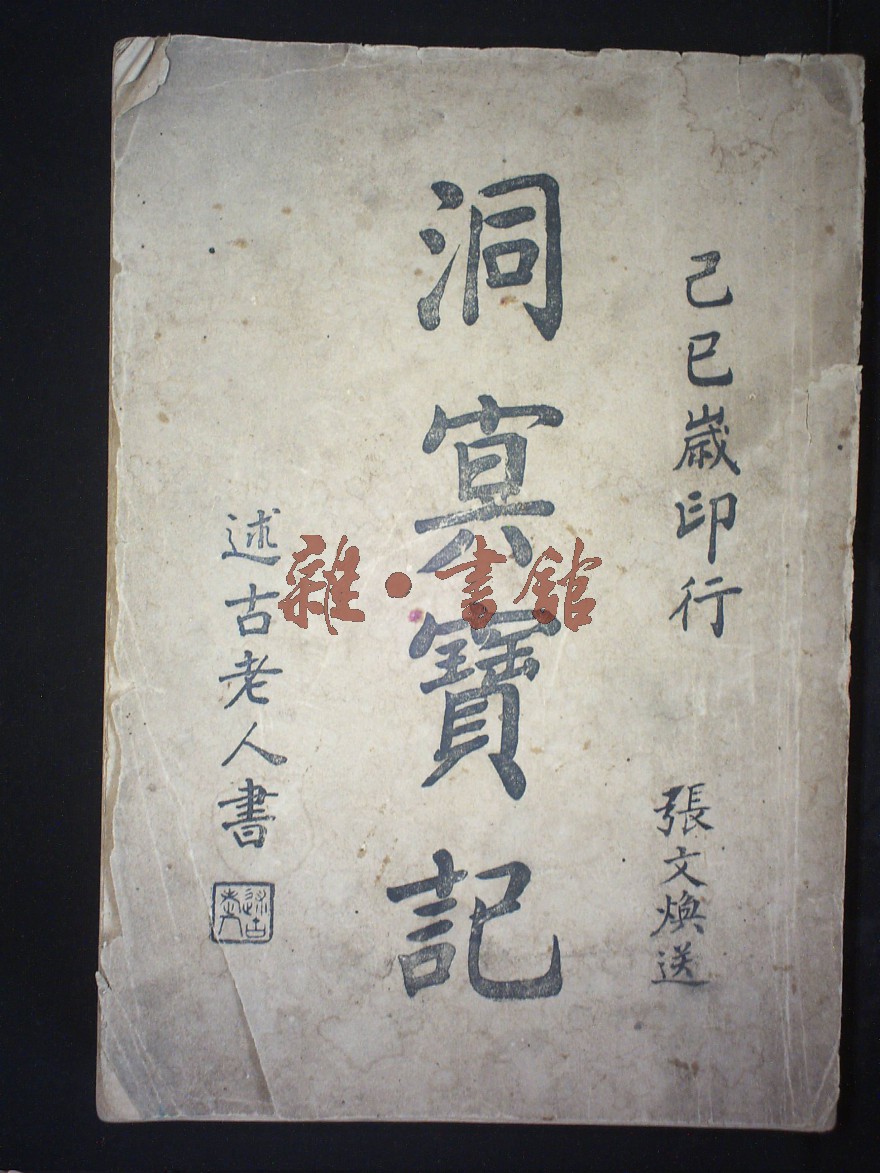 己巳歲印行
張文煥送
洞冥寶記
述古老人書
述古老人
雜·書館